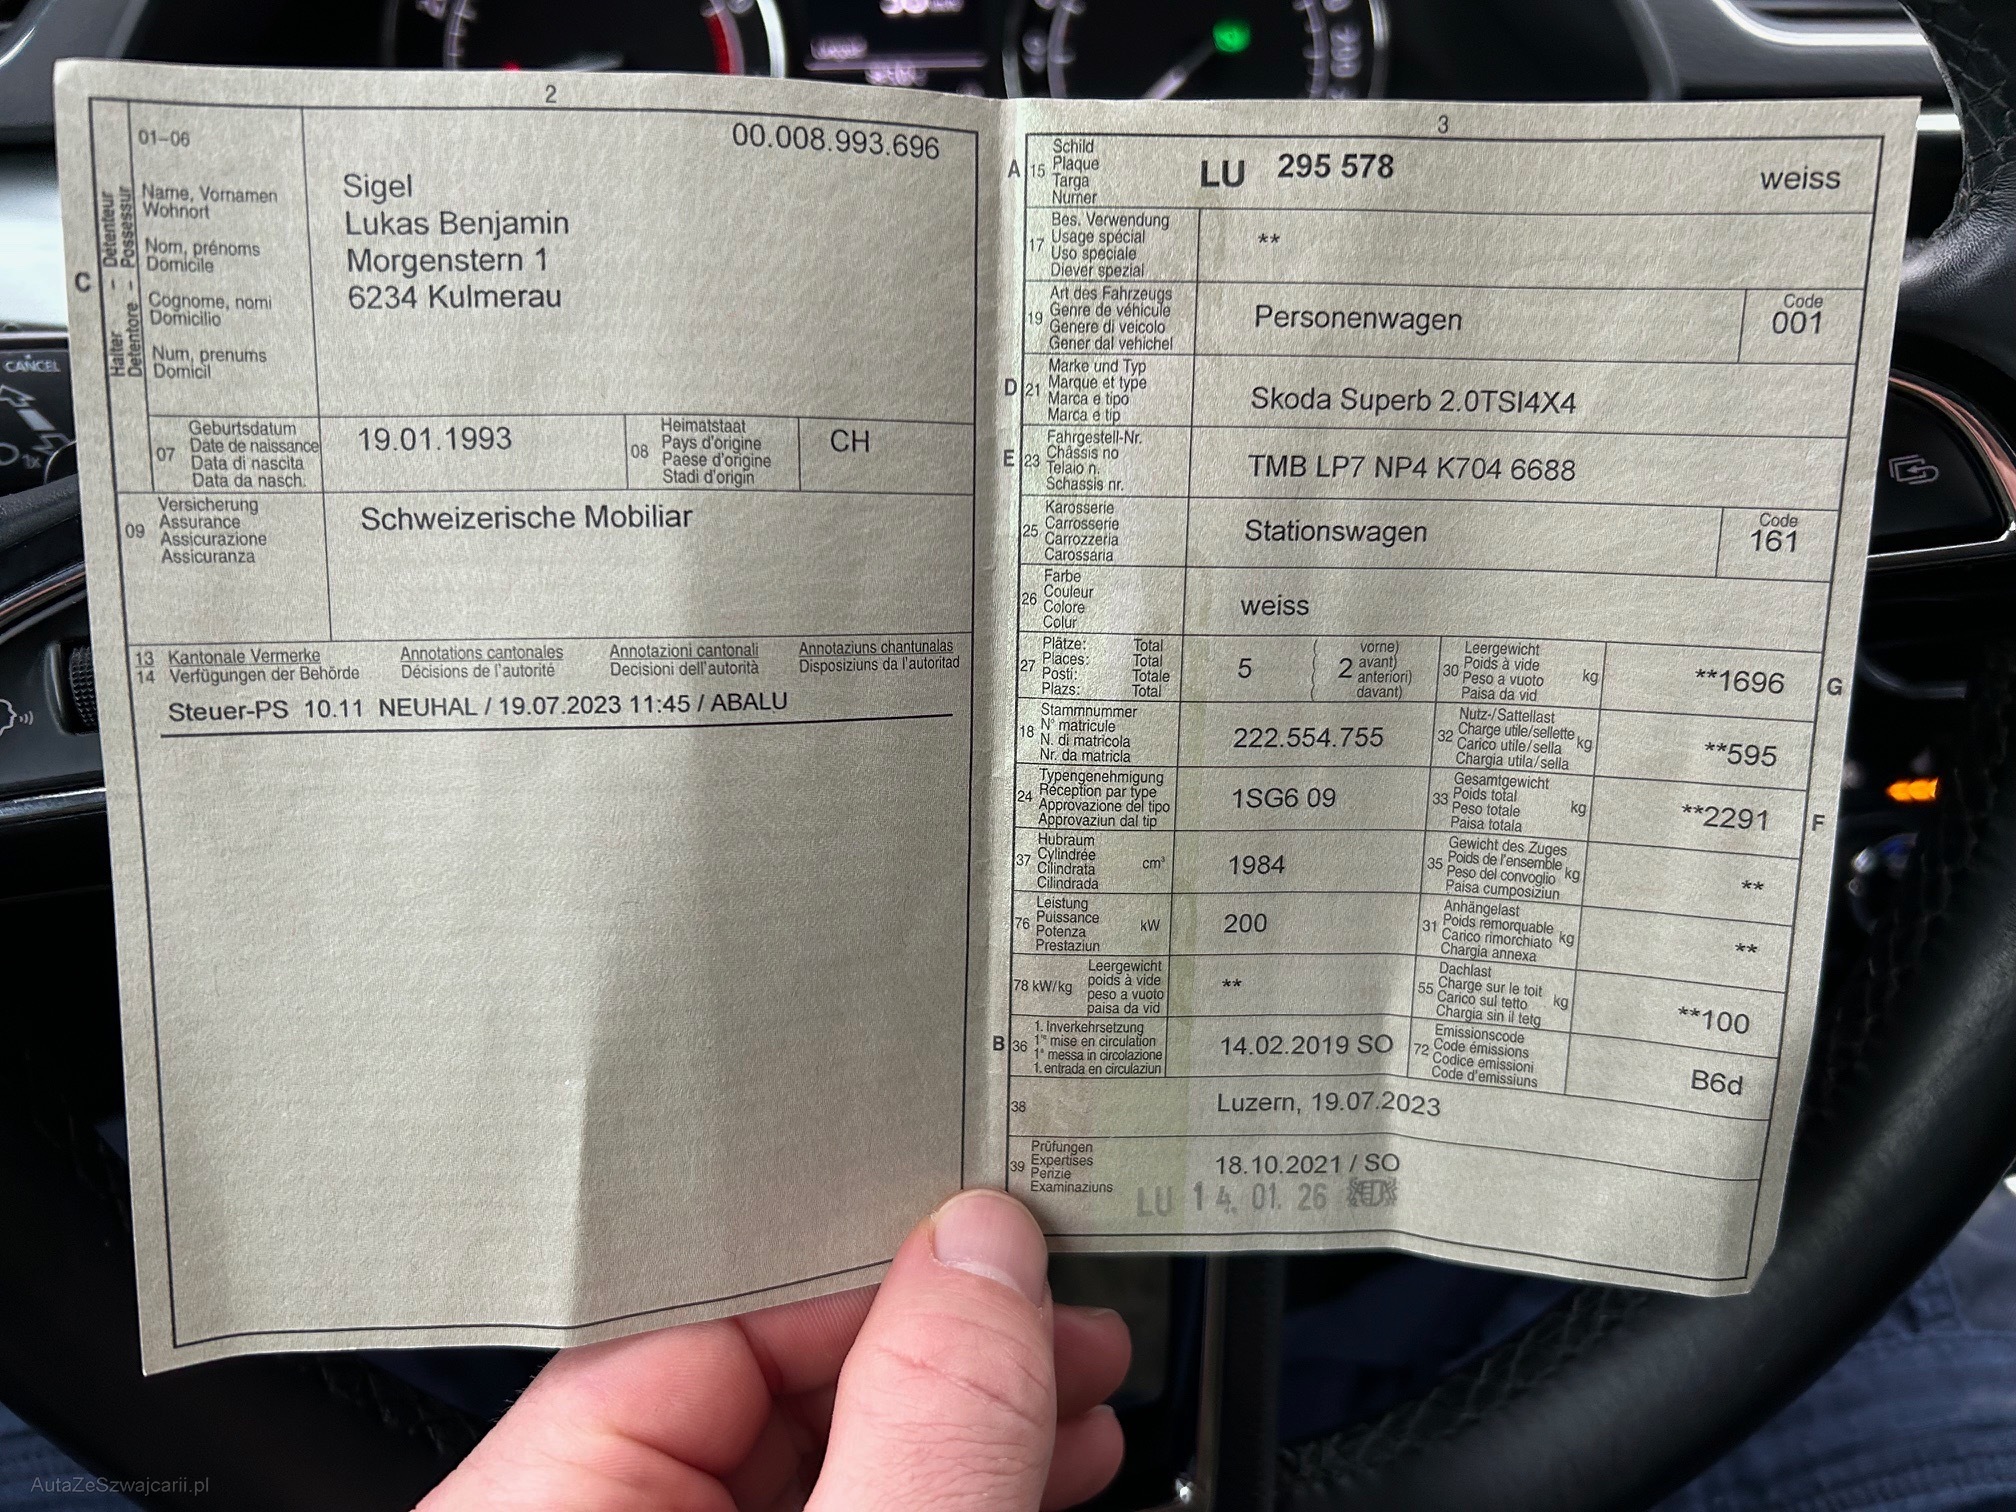 2
01–06
00.008.993.696
Halter – Détenteur
Detentore – Possessur
C
Name, Vornamen
Wohnort
Nom, prénoms
Domicile
Cognome, nomi
Domicilio
Num, prenums
Domicil
Sigel
Lukas Benjamin
Morgenstern 1
6234 Kulmerau
07
Geburtsdatum
Date de naissance
Data di nascita
Data da nasch.
19.01.1993
08
Heimatstaat
Pays d'origine
Paese d'origine
Stadi d'origin
CH
09
Versicherung
Assurance
Assicurazione
Assicuranza
Schweizerische Mobiliar
13 Kantonale Vermerke Annotations cantonales Annotazioni cantonali Annotaziuns chantunalas
14 Verfügungen der Behörde Décisions de l'autorité Decisioni dell'autorità Disposiziuns da l'autoritad
Steuer-PS 10.11 NEUHAL / 19.07.2023 11:45 / ABALU
3
A
15
Schild
Plaque
Targa
Numer
LU 295 578 weiss
17
Bes. Verwendung
Usage spécial
Uso speciale
Diever spezial
**
19
Art des Fahrzeugs
Genre de véhicule
Genere di veicolo
Gener dal vehichel
Personenwagen
Code
001
D
21
Marke und Typ
Marque et type
Marca e tipo
Marca e tip
Skoda Superb 2.0TSI4X4
E
23
Fahrgestell-Nr.
Châssis no
Telaio n.
Schassis nr.
TMB LP7 NP4 K704 6688
25
Karosserie
Carrosserie
Carrozzeria
Carossaria
Stationswagen
Code
161
26
Farbe
Couleur
Colore
Colur
weiss
27
Plätze: Total
Places: Total
Posti: Totale
Plazs: Total
5
( 2
vorne)
avant)
anteriori)
davant)
30
Leergewicht
Poids à vide
Peso a vuoto
Paisa da vid
kg
**1696
G
18
Stammnummer
N° matricule
N. di matricola
Nr. da matricla
222.554.755
32
Nutz-/Sattellast
Charge utile/sellette
Carico utile/sella
Chargia utila/sella
kg
**595
24
Typengenehmigung
Réception par type
Approvazione del tipo
Approvaziun dal tip
1SG6 09
33
Gesamtgewicht
Poids total
Peso totale
Paisa totala
kg
**2291
F
37
Hubraum
Cylindrée
Cilindrata
Cilindrada
cm³
1984
35
Gewicht des Zuges
Poids de l'ensemble
Peso del convoglio
Paisa cumposiziun
kg
**
76
Leistung
Puissance
Potenza
Prestaziun
kW
200
31
Anhängelast
Poids remorquable
Carico rimorchiato
Chargia annexa
kg
**
78 kW/kg
Leergewicht
poids à vide
peso a vuoto
paisa da vid
**
55
Dachlast
Charge sur le toit
Carico sul tetto
Chargia sin il tetg
kg
**100
B
36
1. Inverkehrsetzung
1re mise en circulation
1a messa in circolazione
1. entrada en circulaziun
14.02.2019 SO
72
Emissionscode
Code émissions
Codice emissioni
Code d'emissiuns
B6d
38
Luzern, 19.07.2023
39
Prüfungen
Expertises
Perizie
Examinaziuns
18.10.2021 / SO
LU 14. 01. 26
CANCEL
AutaZeSzwajcarii.pl